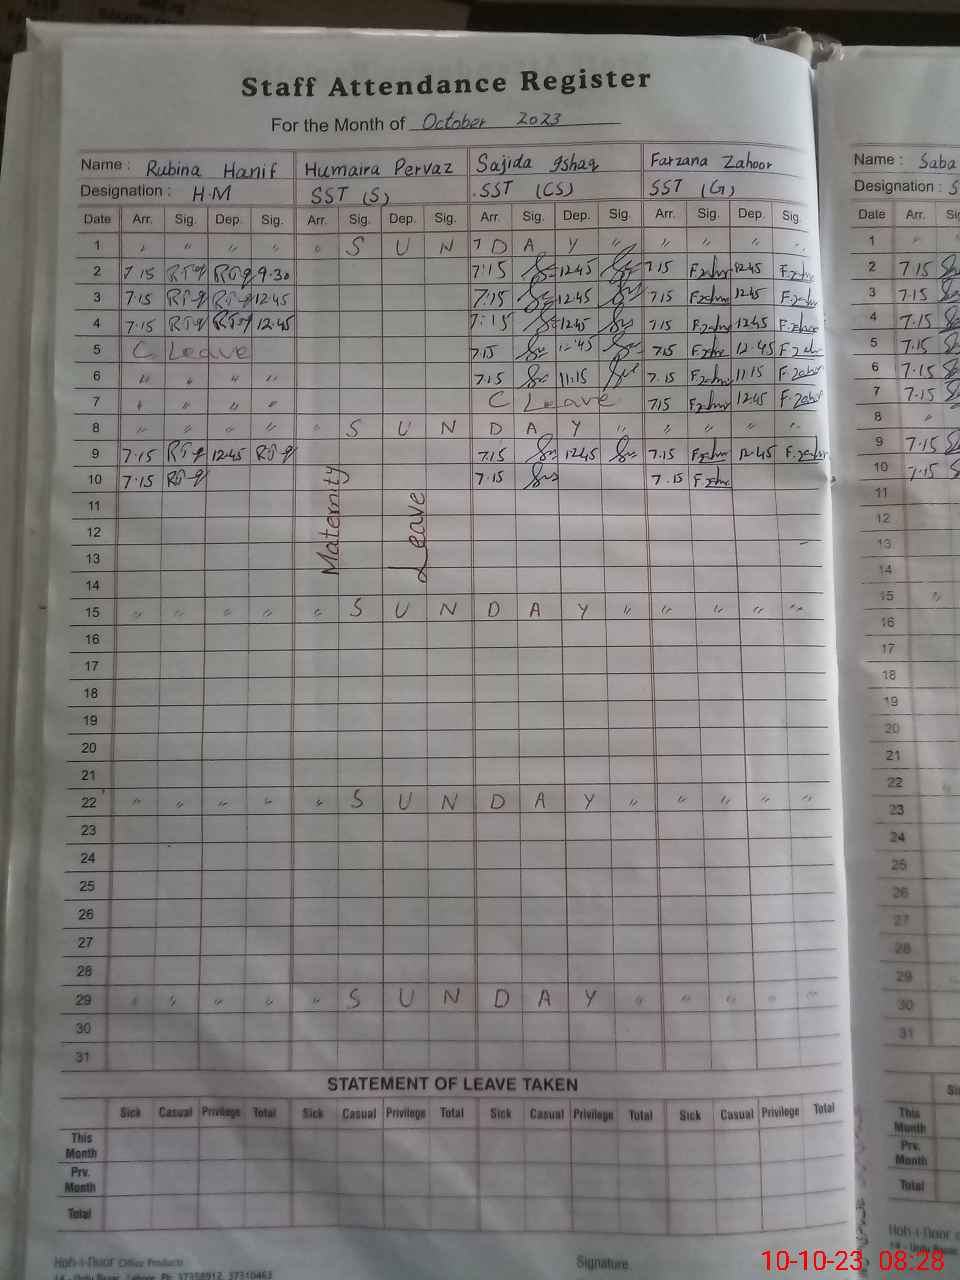 Staff Attendance Register
For the Month of October 2023
Name : Rubina Hanif Humaira Pervaz Sajida Ishaq Farzana Zahoor
Designation : H.M SST (S) SST (CS) SST (G)
Date Arr. Sig. Dep. Sig. Arr. Sig. Dep. Sig. Arr. Sig. Dep. Sig. Arr. Sig. Dep. Sig.
1 " " " " " S U N D A Y " " " " "
2 7.15 9.30 7:15 12.45 7.15 F.zahr 12.45 F.zahr
3 7.15 12.45 7:15 12.45 7.15 F.zahr 12.45 F.zahr
4 7.15 12.45 7:15 12.45 7.15 F.zahr 12.45 F.zahr
5 C Leave 7.15 7.15 F.zahr 12.45 F.zahr
6 " " " " 7.15 11.15 7.15 F.zahr 11.15 F.zahr
7 " " " " C Leave 7.15 F.zahr 12.45 F.zahr
8 " " " " " S U N D A Y " " " " "
9 7.15 12.45 7.15 12.45 7.15 F.zahr 12.45 F.zahr
10 7.15 7.15 7.15 F.zahr
Maternity Leave
11
12
13
14
15 " " " " " S U N D A Y " " " " "
16
17
18
19
20
21
22 " " " " " S U N D A Y " " " " "
23
24
25
26
27
28
29 " " " " " S U N D A Y " " " " "
30
31
STATEMENT OF LEAVE TAKEN
Sick Casual Privilege Total Sick Casual Privilege Total Sick Casual Privilege Total Sick Casual Privilege Total
This Month
Prv. Month
Total
Office Products
Signature
Name : Saba
Designation : S
Date Arr. Sig.
1 " "
2 7.15
3 7.15
4 7.15
5 7.15
6 7.15
7 7.15
8 "
9 7.15
10 7.15
11
12
13
14
15 "
16
17
18
19
20
21
22
23
24
25
26
27
28
29
30
31
This Month
Prv. Month
Total
10-10-23 08:28